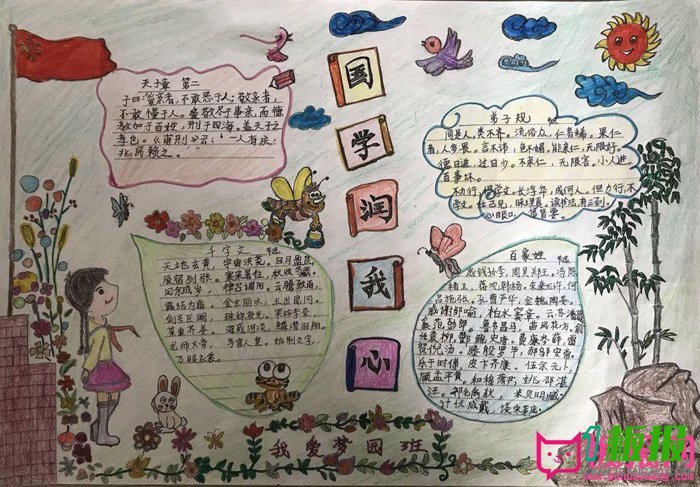 国
学
润
我
心
天子章 第二
子曰:爱亲者,不敢恶于人;敬亲者,
不敢慢于人。爱敬尽于事亲,而德
教加于百姓,刑于四海。盖天子之
孝也。《甫刑》云:“一人有庆,
兆民赖之。”
弟子规
同是人,类不齐。流俗众,仁者稀。果仁
者,人多畏。言不讳,色不媚。能亲仁,无限好。
德日进,过日少。不亲仁,无限害。小人进
百事坏。
不力行,但学文。长浮华,成何人。但力行,不
学文。任己见,昧理真。读书法,有三到。
心眼口,信皆要。
千字文 节选
天地玄黄,宇宙洪荒。日月盈昃
辰宿列张。寒来暑往,秋收冬藏。
闰余成岁,律吕调阳。云腾致雨,
露结为霜。金生丽水,玉出昆冈。
剑号巨阙,珠称夜光。果珍李柰,
菜重芥姜。海咸河淡,鳞潜羽翔。
龙师火帝,鸟官人皇。始制文字,
乃服衣裳。
百家姓 节选
赵钱孙李,周吴郑王。冯陈
朱秦尤许,何
吕施张。孔曹严华,金魏陶姜。
戚谢邹喻,柏水窦章。云苏潘
葛奚范彭郎,鲁韦昌马。苗凤花方,俞
任袁柳,酆鲍史唐。费廉岑薛,雷
贺倪汤。滕殷罗毕,郝邬安常。
乐于时傅,皮卞齐康。伍余元卜,
顾孟平黄。和穆萧尹,姚邵湛
汪。祁毛禹狄,米贝明臧。
计伏成戴,谈宋茅庞。
我爱梦园班
板报